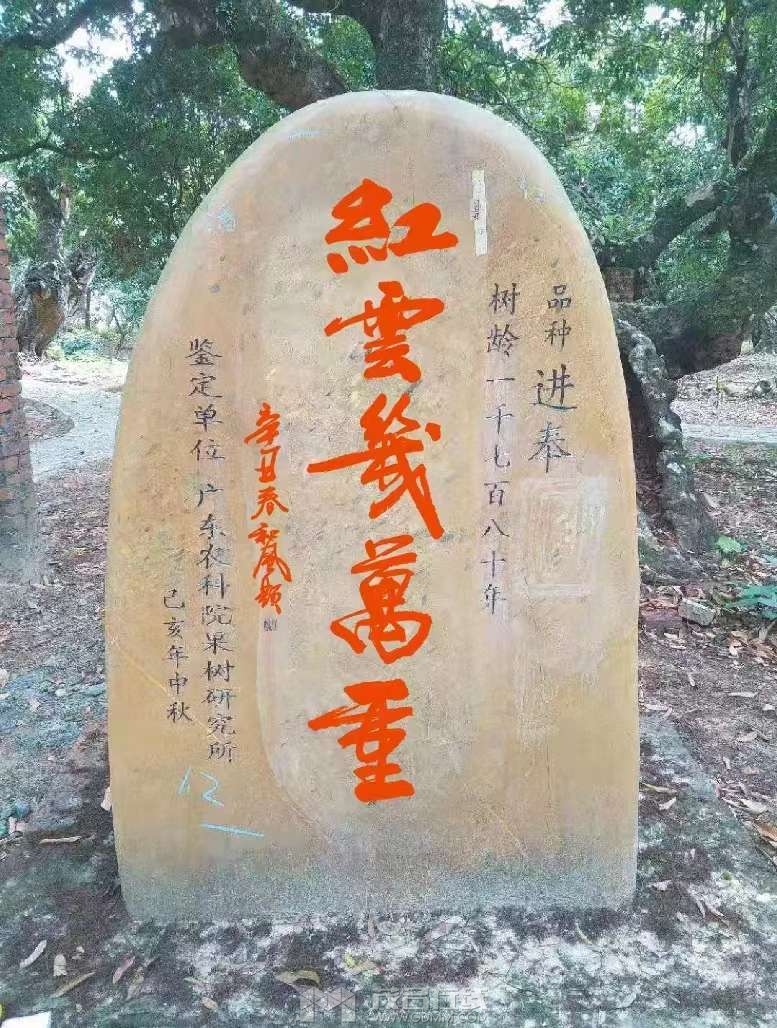 品种 进奉
树龄一千七百八十年
紅雲幾萬重
辛丑春和风题
鉴定单位 广东农科院果树研究所
己亥年中秋
12